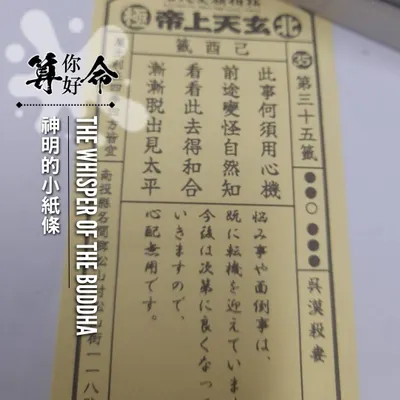 算你好命
神明的小紙條
THE WHISPER OF THE BUDDHA
北 玄天上帝 極
己酉籤
35
第三十五籤
●●○●●●
吳漢殺妻
此事何須用心機
前途變怪自然知
看看此去得和合
漸漸脫出見太平
悩み事や面倒事は、
既に転機を迎えていま
今後は次第に良くなっ
いきますので、
心配無用です。
四方皆宜
南投縣名間鄉松山村
街一一八